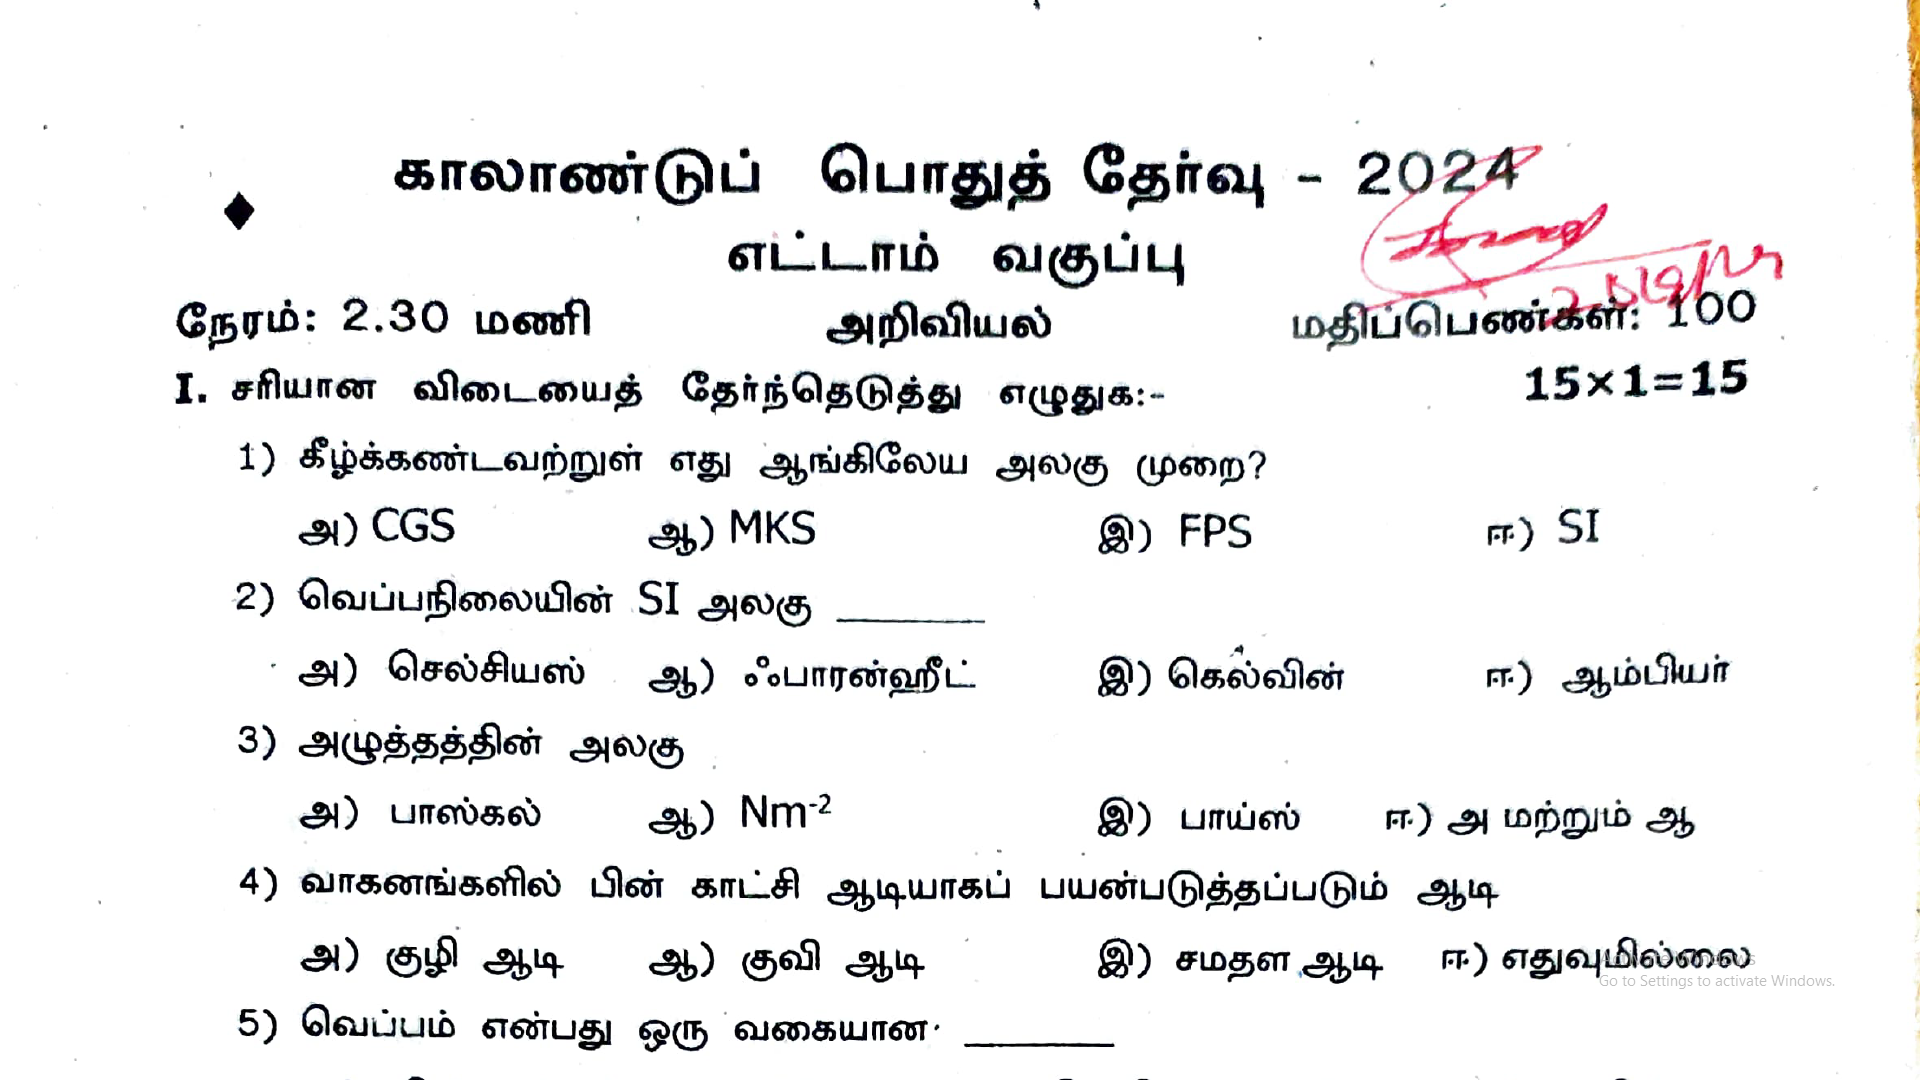 காலாண்டுப் பொதுத் தேர்வு - 2024
எட்டாம் வகுப்பு
நேரம்: 2.30 மணி அறிவியல் மதிப்பெண்கள்: 100
I. சரியான விடையைத் தேர்ந்தெடுத்து எழுதுக:- 15×1=15
1) கீழ்க்கண்டவற்றுள் எது ஆங்கிலேய அலகு முறை?
அ) CGS ஆ) MKS இ) FPS ஈ) SI
2) வெப்பநிலையின் SI அலகு ______
அ) செல்சியஸ் ஆ) ஃபாரன்ஹீட் இ) கெல்வின் ஈ) ஆம்பியர்
3) அழுத்தத்தின் அலகு
அ) பாஸ்கல் ஆ) Nm⁻² இ) பாய்ஸ் ஈ) அ மற்றும் ஆ
4) வாகனங்களில் பின் காட்சி ஆடியாகப் பயன்படுத்தப்படும் ஆடி
அ) குழி ஆடி ஆ) குவி ஆடி இ) சமதள ஆடி ஈ) எதுவுமில்லை
Activate Windows
Go to Settings to activate Windows.
5) வெப்பம் என்பது ஒரு வகையான ______